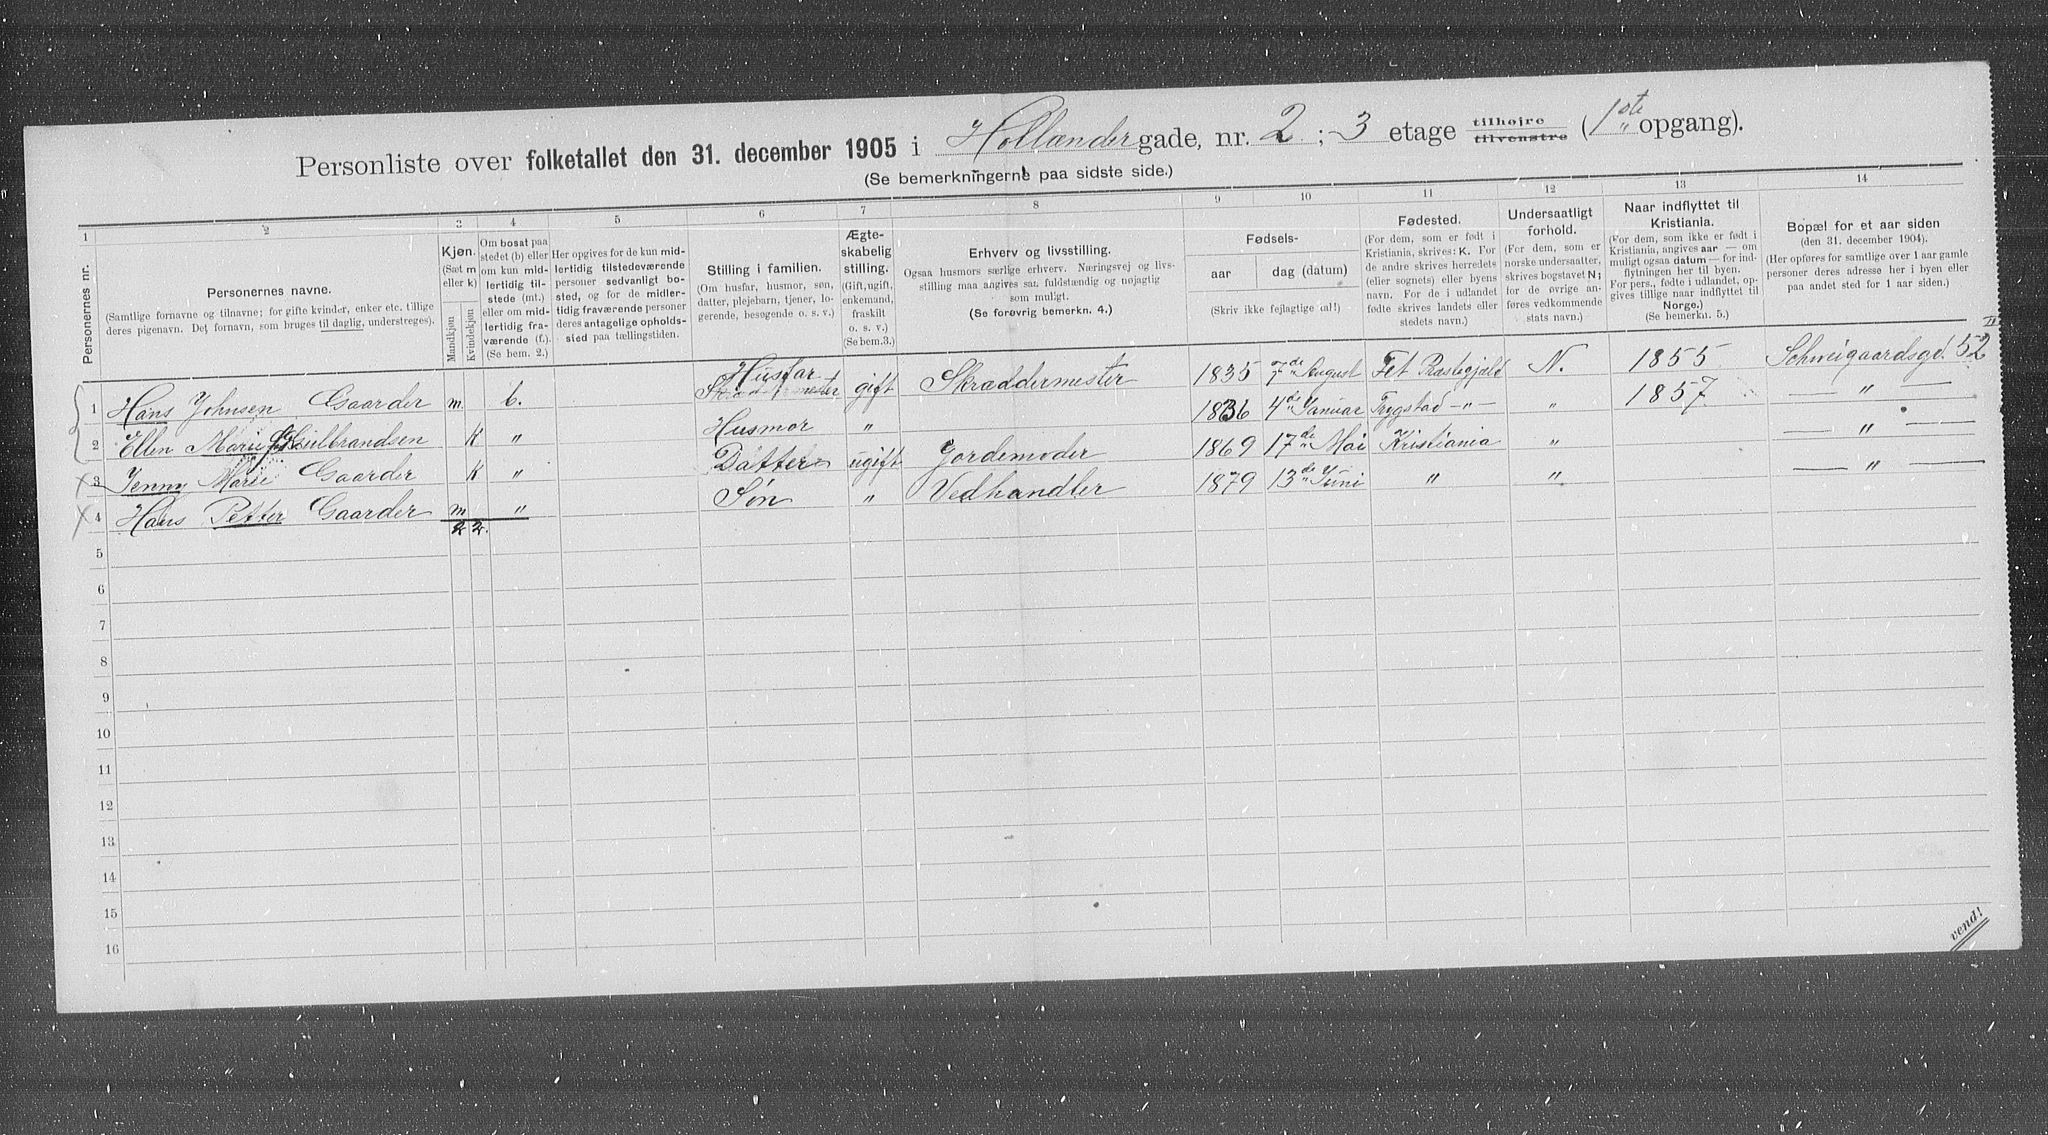 Personliste over folketallet den 31. december 1905 i Hollændergade, nr. 2; 3 etage tilhøjre tilvenstre (1ste opgang).
(Se bemerkningerne paa sidste side.)
1 2 3 4 5 6 7 8 9 10 11 12 13 14
Personernes nr.
Personernes navne.
(Samtlige fornavne og tilnavne; for gifte kvinder, enker etc. tillige
deres pigenavn. Det fornavn, som bruges til daglig, understreges).
Kjøn.
(Sæt m
eller k)
Mandkjøn
Kvindekjøn
Om bosat paa
stedet (b) eller
om kun mid-
lertidig til-
stede (mt.)
eller om mid-
lertidig fra-
værende (f.).
(Se bem. 2.)
Her opgives for de kun mid-
lertidig tilstedeværende
personer sedvanlig bo-
sted, og for de midler-
tidig fraværende personer
deres antagelige opholds-
sted paa tællingstiden.
Stilling i familien.
(Om husfar, husmor, søn,
datter, plejebarn, tjener, lo-
gerende, besøgende o. s. v.)
Ægte-
skabelig
stilling.
(Gift, ugift,
enkemand,
fraskilt
o. s. v.)
(Se bem.3.)
Erhverv og livsstilling.
Ogsaa husmors særlige erhverv. Næringsvej og livs-
stilling maa angives sat. fuldstændig og nøjagtig
som muligt.
(Se forøvrig bemerkn. 4.)
Fødsels-
aar dag (datum)
(Skriv ikke fejlagtige tal!)
Fødested.
(For dem, som er født i
Kristiania, skrives: K. For
de andre skrives herredets
(eller sognets) eller byens
navn. For de i udlandet
fødte skrives landets eller
stedets navn.)
Undersaatligt
forhold.
(For dem, som er
norske undersaatter,
skrives bogstavet N;
for de øvrige an-
føres vedkommende
stats navn.)
Naar indflyttet til
Kristiania.
(For dem, som ikke er født i
Kristiania, angives aar — om
muligt ogsaa datum — for ind-
flytningen her til byen.
For pers., fødte i udlandet, op-
gives tillige naar indflyttet til
Norge.)
(Se bemerkn. 5.)
Bopæl for et aar siden
(den 31. december 1904).
(Her opføres for samtlige over 1 aar gamle
personer deres adresse her i byen eller
paa andet sted for 1 aar siden.)
1 Hans Johnsen Gaarder m. b. Husfar Skræddermester gift Skræddermester 1835 7de August Fet Prestegjæld N. 1855 Schweigaardsgd. 52 II
2 Ellen Marie f. Gulbrandsen K " Husmor " 1836 4de Januar Trygstad —"— " 1857 — " —
3 Jenny Marie Gaarder K " Datter ugift Jordemoder 1869 17de Mai Kristiania " — " —
4 Hans Petter Gaarder m " Søn " Vedhandler 1879 13de Juni " " — " —
2 2.
5
6
7
8
9
10
11
12
13
14
15
16
vend!